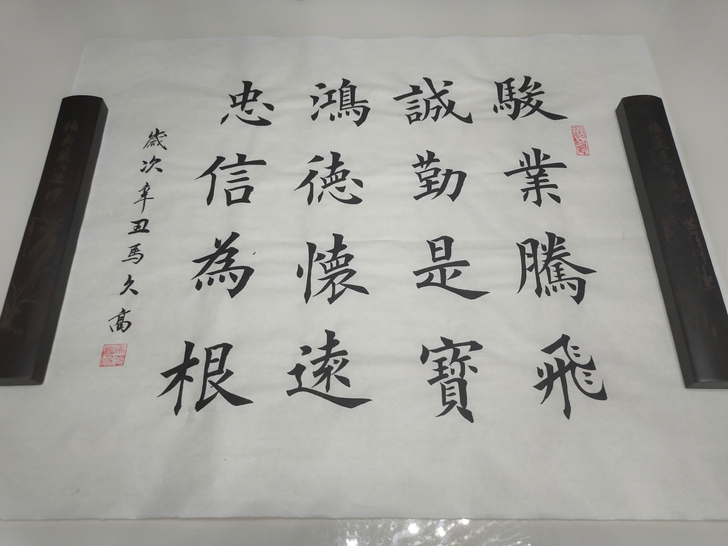 駿業騰飛
誠勤是寶
鴻德懷遠
忠信為根
歲次辛丑馬久高